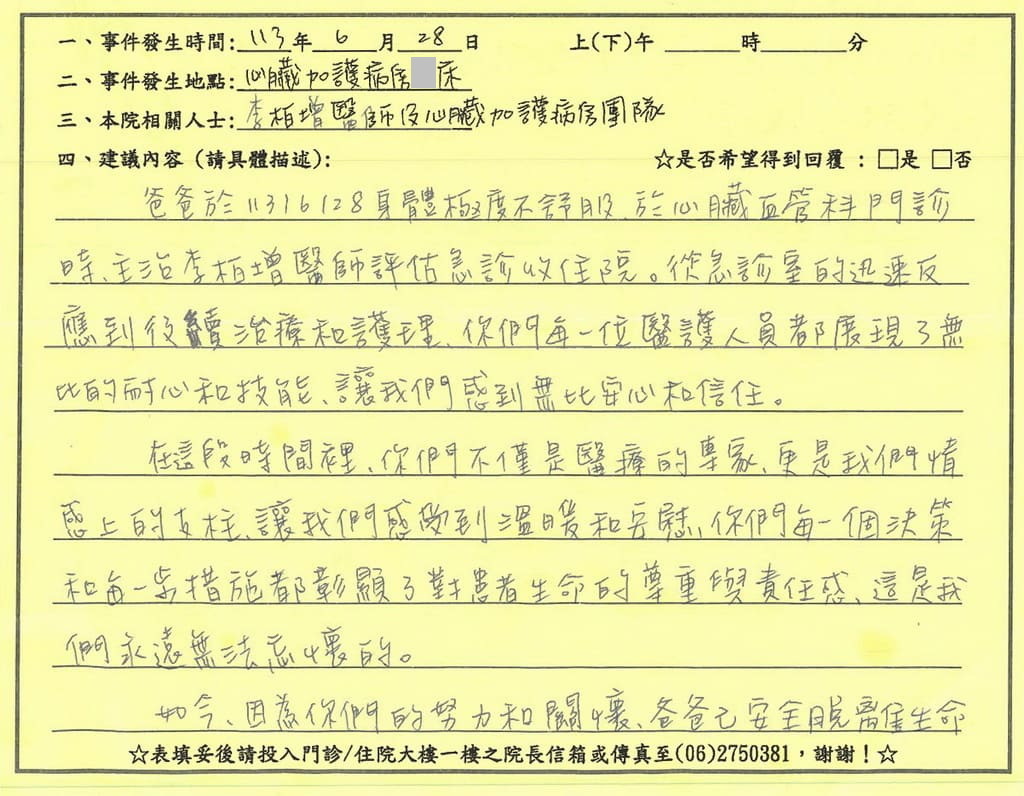 一、事件發生時間：113年6月28日 上(下)午 時 分
二、事件發生地點：心臟加護病房 床
三、本院相關人士：李柏增醫師及心臟加護病房團隊
四、建議內容（請具體描述）： ☆是否希望得到回覆：□是 □否
爸爸於113/6/28身體極度不舒服、於心臟血管科門診
時、主治李柏增醫師評估急診收住院。從急診室的迅速反
應到後續治療和護理、你們每一位醫護人員都展現了無
比的耐心和技能、讓我們感到無比安心和信任。
在這段時間裡、你們不僅是醫療的專家、更是我們情
感上的支柱、讓我們感受到溫暖和安慰、你們每一個決策
和每一步措施都彰顯了對患者生命的尊重與責任感、這是我
們永遠無法忘懷的。
如今、因為你們的努力和關懷、爸爸已安全脫離生命
☆表填妥後請投入門診/住院大樓一樓之院長信箱或傳真至(06)2750381，謝謝！☆